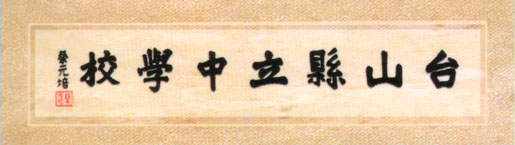 台山縣立中學校
蔡元培